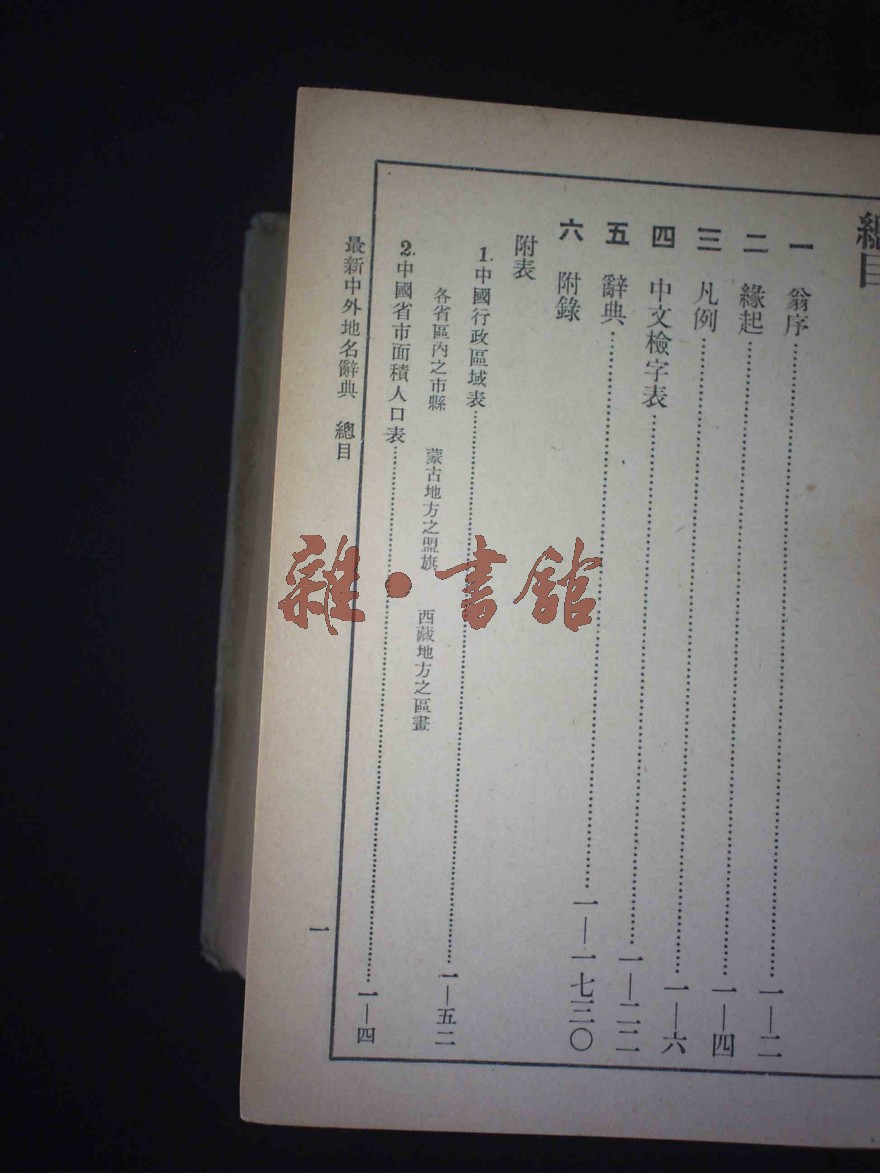 總目
一 翁序……一—二
二 緣起……一—四
三 凡例……一—六
四 中文檢字表……一—二二
五 辭典……一—一七三〇
六 附錄
附表
1.中國行政區域表……一—五二
各省區內之市縣 蒙古地方之盟旗 西藏地方之區畫
2.中國省市面積人口表……一—四
最新中外地名辭典 總目 一
雜·書館